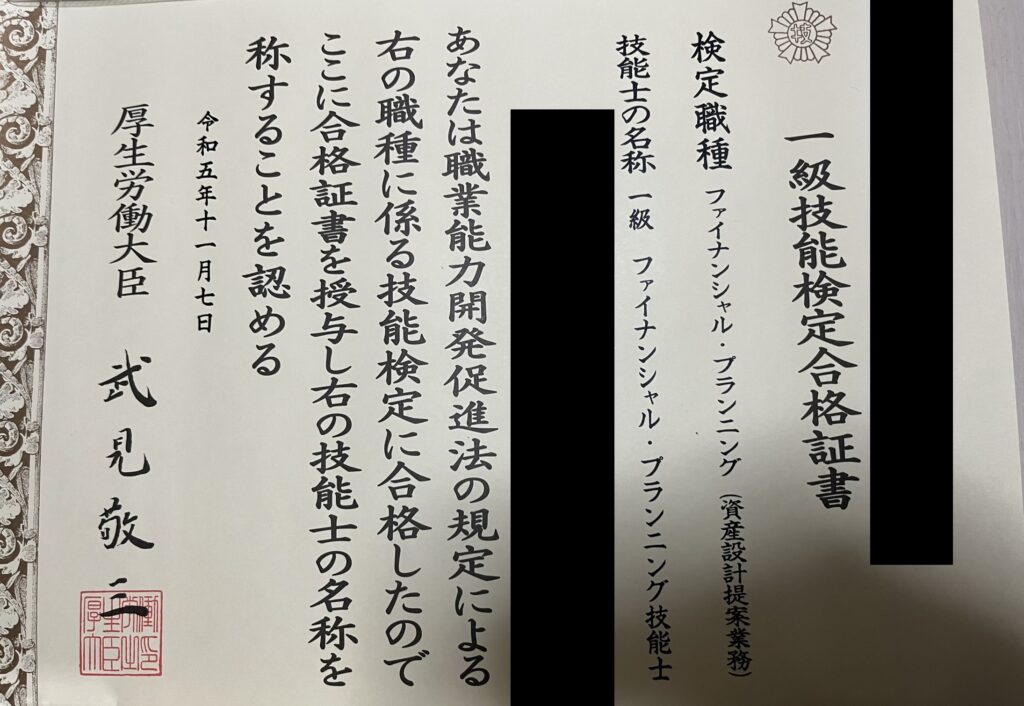 技
一級技能検定合格証書
検定職種 ファイナンシャル・プランニング(資産設計提案業務)
技能士の名称 一級 ファイナンシャル・プランニング技能士
あなたは職業能力開発促進法の規定による
右の職種に係る技能検定に合格したので
ここに合格証書を授与し右の技能士の名称を
称することを認める
令和五年十一月七日
厚生労働大臣 武見敬三